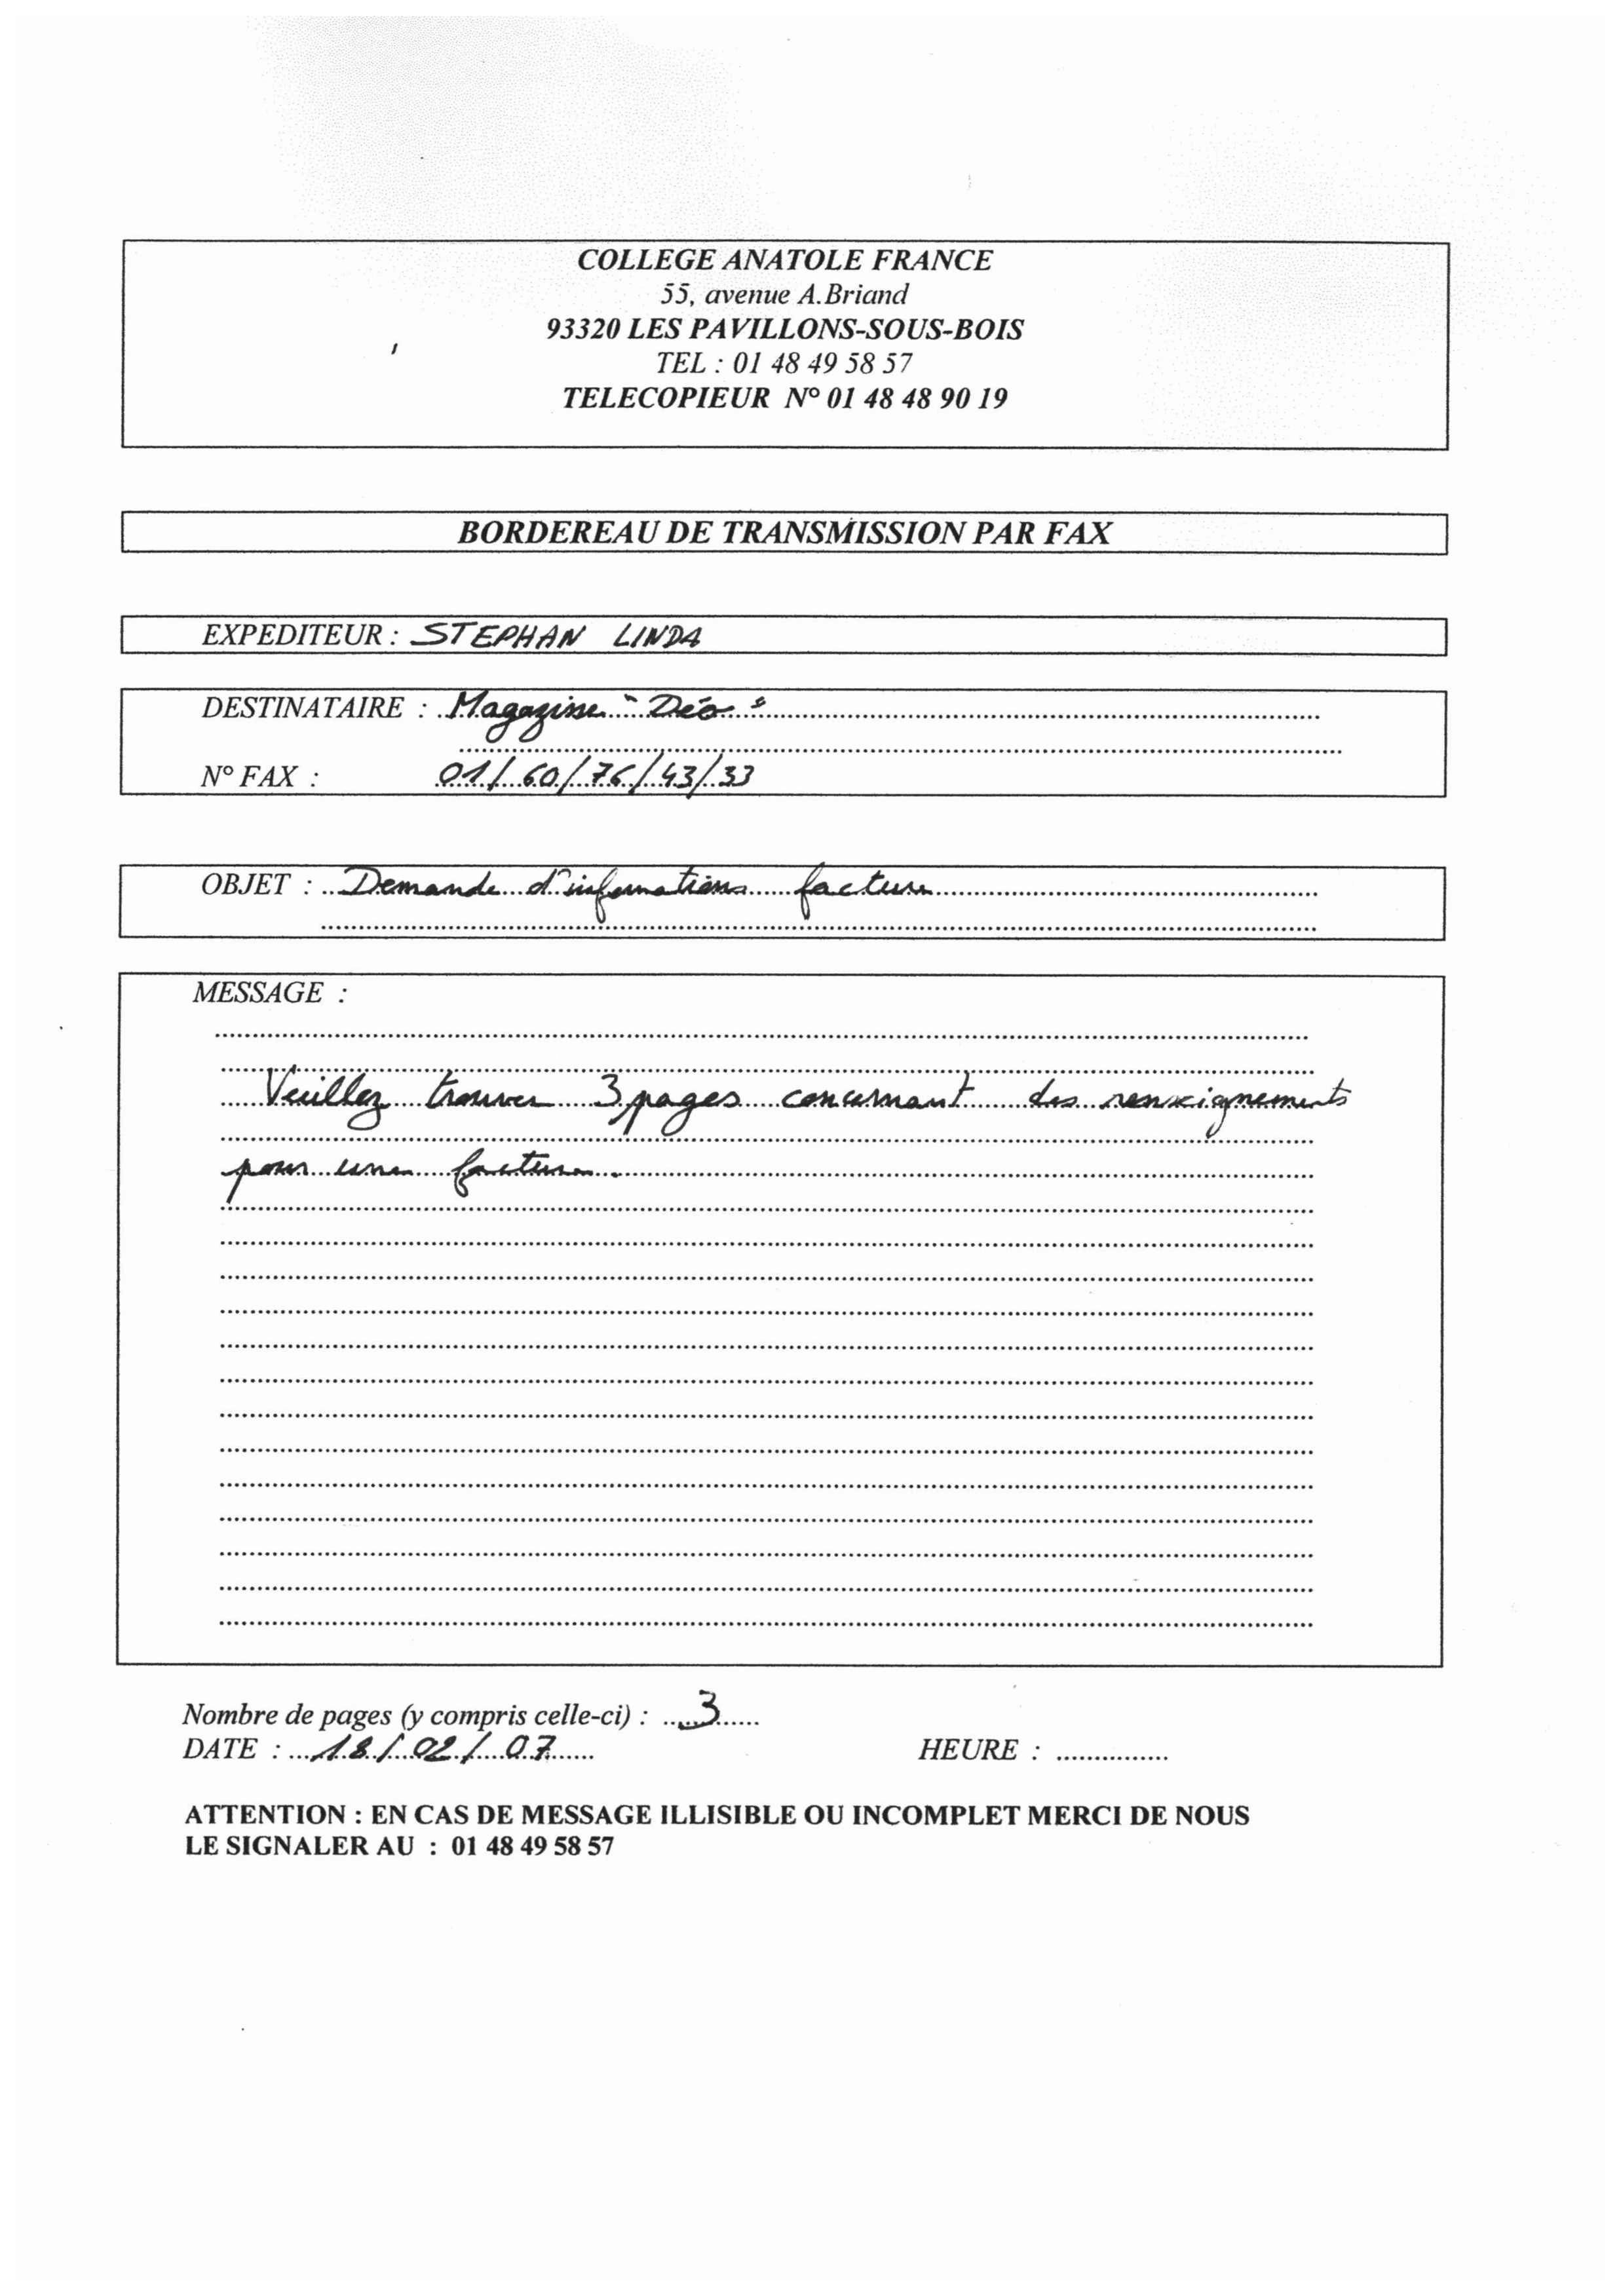 COLLEGE ANATOLE FRANCE
55, avenue A.Briand
93320 LES PAVILLONS-SOUS-BOIS
TEL : 01 48 49 58 57
TELECOPIEUR N° 01 48 48 90 19
BORDEREAU DE TRANSMISSION PAR FAX
EXPEDITEUR : STEPHAN LINDA
DESTINATAIRE : Magazine "Déo"
N° FAX : 01/60/76/43/33
OBJET : Demande d'informations facture
MESSAGE :
Veuillez trouver 3 pages concernant des renseignements
pour une facture.
Nombre de pages (y compris celle-ci) : 3
DATE : 18/02/07 HEURE :
ATTENTION : EN CAS DE MESSAGE ILLISIBLE OU INCOMPLET MERCI DE NOUS
LE SIGNALER AU : 01 48 49 58 57